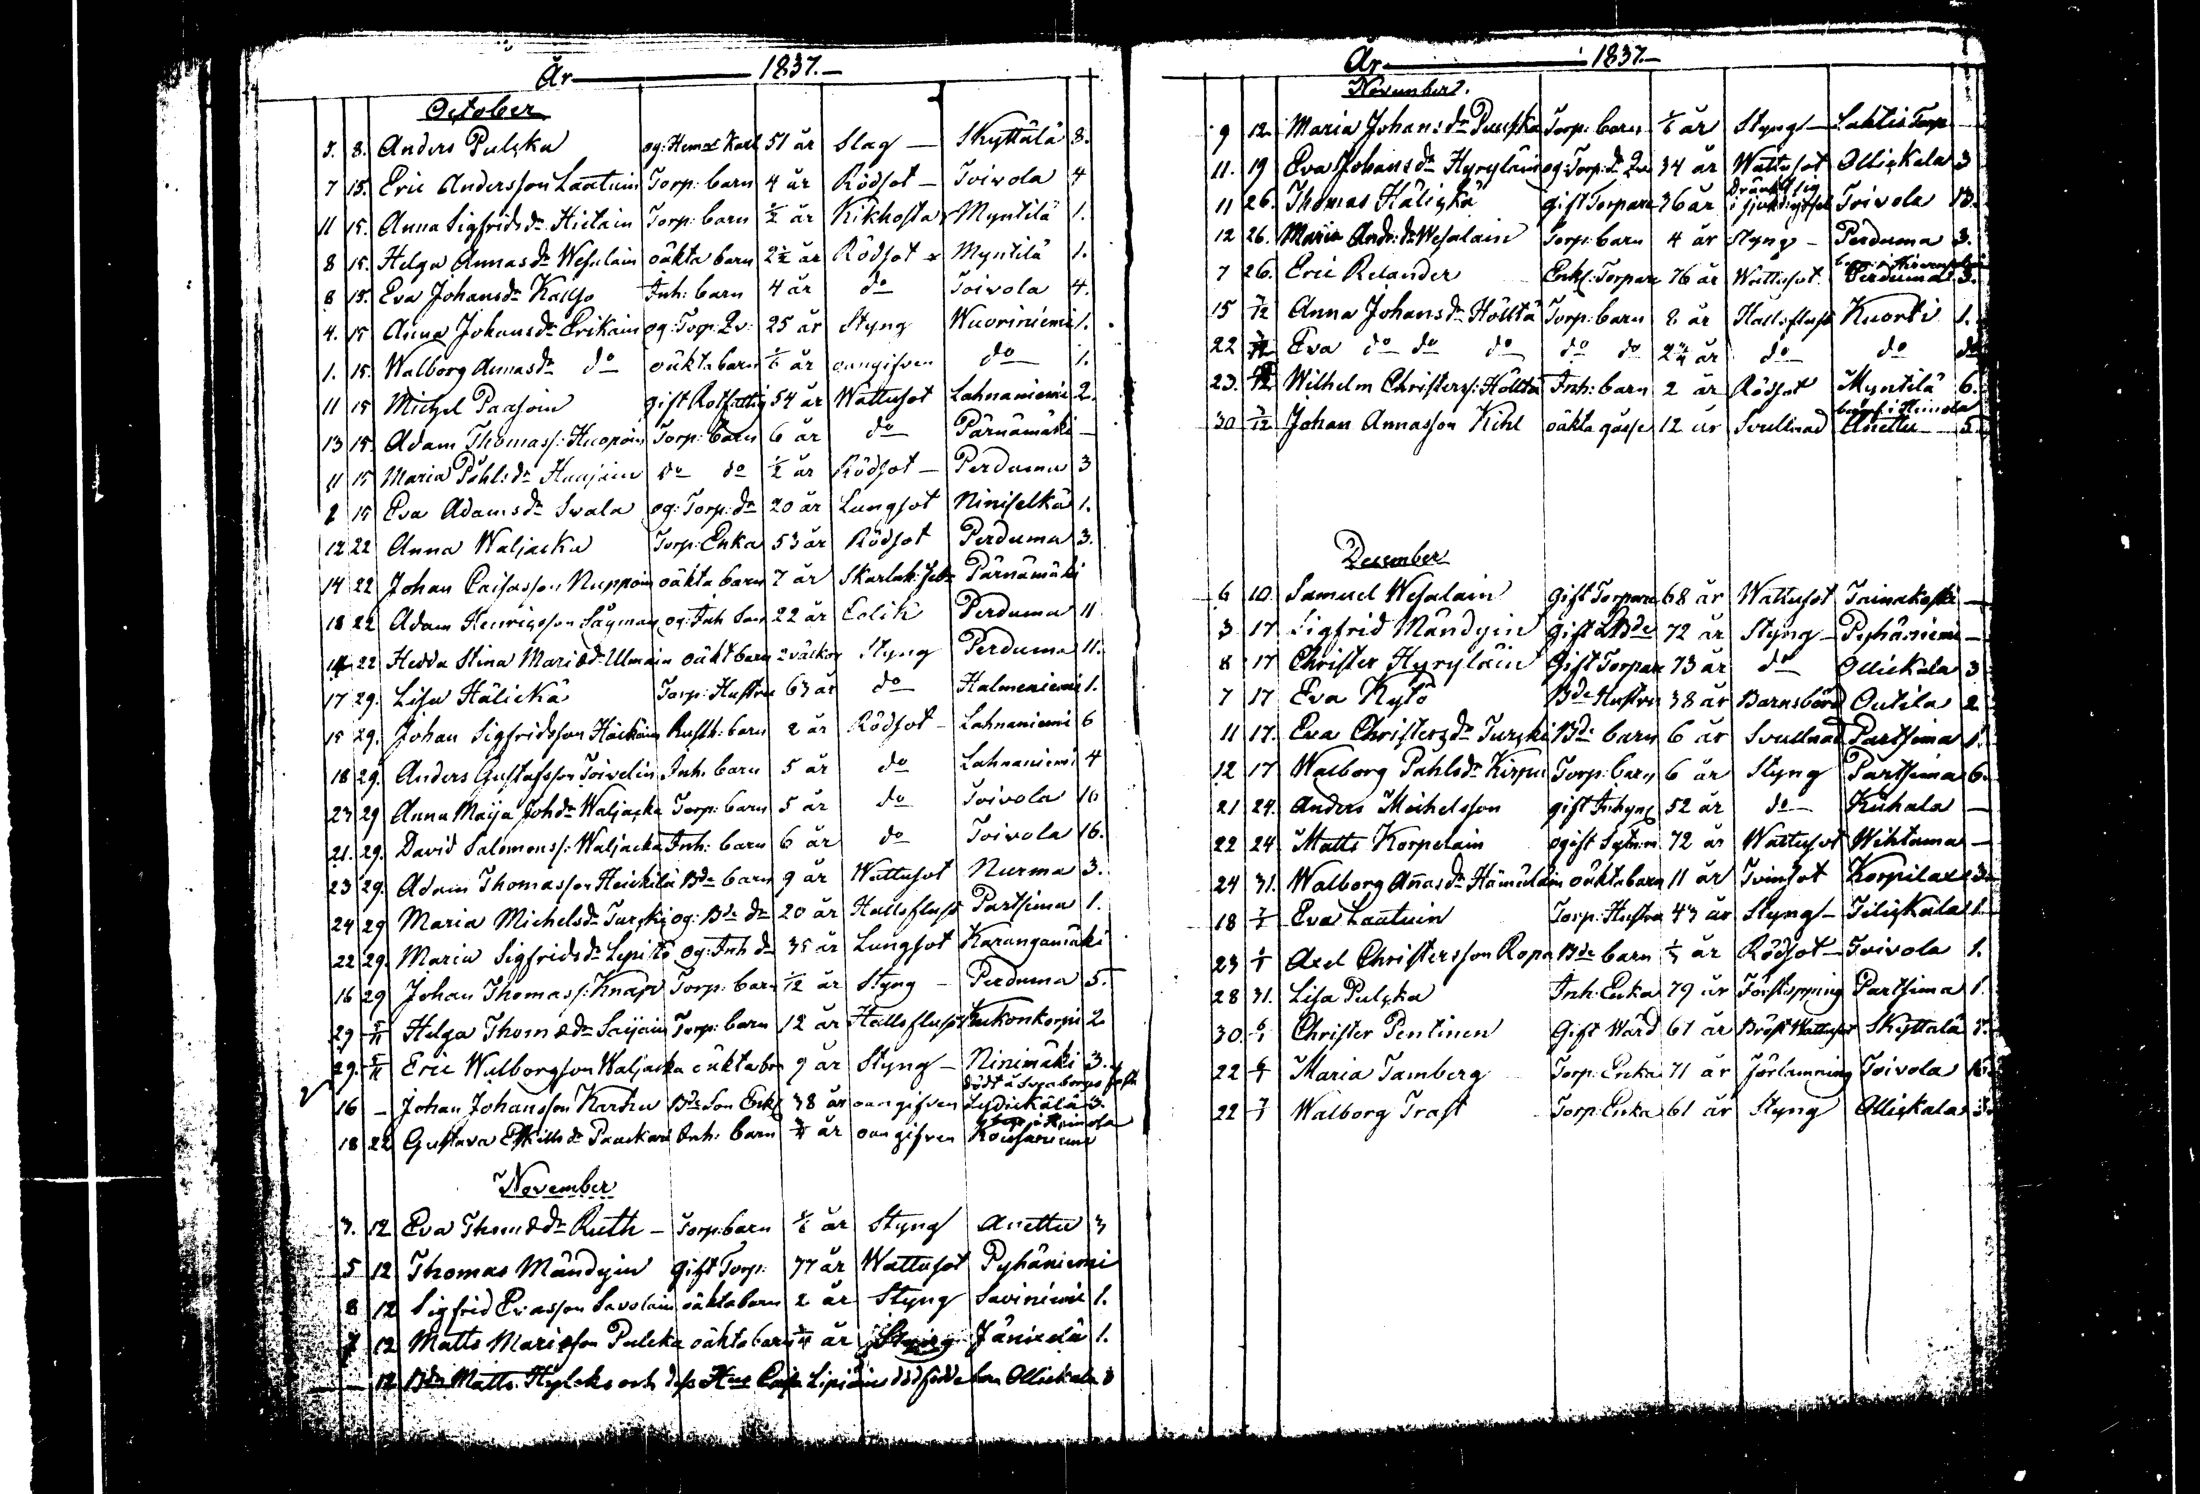 År 1837.
October
5. 8. Anders Pulcka og: Hemos Karl 51 år Slag Skyttälä 8.
7 15. Eric Andersson Laatuin Torp: barn 4 år Rödsot Toivola 4
11 15. Anna Sigfridsdr Hietain Torp: barn ½ år Kikhosta Myntilä 1.
8 15. Helga Annasdr Wesalain oäkta barn 2½ år Rödsot Myntilä 1.
8 15. Eva Johansdr Kallio Inh: barn 4 år do Toivola 4.
4. 15 Anna Johansdr Erikain og: Torp: Qv: 25 år Styng Wuoriniemi 1.
1. 15. Walborg Annasdr do oäkta barn 1/6 år oangifven do 1.
11 15 Michel Paasoin gift Rotfattig 54 år Wattusot Lahnaniemi 2.
13 15. Adam Thomass: Kuopoin Torp: barn 6 år do Pärnämäki
11 15 Maria Påhlsdr do do ½ år Rödsot Perduma 3
2 15 Eva Adamsdr Svala og: Torp: dr 20 år Lungsot Niniselkä 1.
12 22 Anna Waljacka Torp: Enka 53 år Rödsot Perduma 3.
14 22 Johan Caisasson Nuppoin oäkta barn 7 år Skarlak: feb: Pärnämäki
18 22 Adam Henricsson Sayman og: Inh Son 22 år Colik Perduma 11
14 22 Hedda Stina Mariædr Ulmain oäkt barn 2 väckor Styng Perduma 11.
17 29. Lisa Hälickä Torp: Hustru 63 år do Halmeniemi 1.
15 29. Johan Sigfridsson Häickäin Rusth: barn 2 år Rödsot Lahnaniemi 6
18 29. Anders Gustafsson Toivelin Inh: barn 5 år do Lahnaniemi 4
23 29 Anna Maija Johdr Waljacka Torp: barn 5 år do Toivola 16
21. 29. David Salomonss: Waljacka Inh: barn 6 år do Toivola 16.
23 29. Adam Thomasson Heickilä Bde barn 9 år Wattusot Nurma 3.
24 29 Maria Michelsdr Turcki og: Bde dr 20 år Hallsfluss Partsima 1.
22 29. Maria Sigfridsdr Lepistö og: Inh dr 35 år Lungsot Karangamäki
16 29 Johan Thomass: Knap Torp: barn 1/12 år Styng Perduma 5.
29 5/11 Helga Thomædr Saijain Torp: barn 12 år Hallsfluss Kukonkorpi 2
29. 5/11 Eric Walborgson Waljacka oäkta barn 9 år Styng Ninimäki 3.
död å Sveaborgs fästn
16 – Johan Johansson Karhu Bde Son Enkl 38 år oangifven Lydickälä 3.
begr i Heinola
18 22 Gustava Eskillsdr Paackari Inh: barn ¾ år oangifven Koissaniemi
November
3. 12 Eva Thomædr Ruth Torp: barn 1/6 år Styng Anettu 3
5 12 Thomas Mändyin gift Torp: 77 år Wattusot Pyhäniemi
8 12 Sigfrid Evasson Savolain oäkta barn 2 år Styng Saviniemi 1.
7 12 Matts Mariæson Pulcka oäkta barn ¾ år Styng Jänicelä 1.
– 12 Bdn Matts och dess Hus Caisa dödfödde barn Ollickala 3
År 1837.
November.
9 12. Maria Johansdr Puuska Torp: barn 1/6 år Styng Lahtis Torp
11. 19 Eva Johansdr Hyryläin og: Torp: dr Qv 34 år Wattusot Ollickala 3
11 26. Thomas Hälickä gift Torpare 36 år dränkt sig i sjukdigtset Toivola 13.
12 26. Maria Andr: dr Wesalain Torp: barn 4 år Styng Perduma 3.
7 26. Eric Relander Enkl: Torpare 76 år Wattusot Perduma 3.
15 3/12 Anna Johansdr Hölttä Torp: barn 8 år Hallsfluss Kuorti 1.
22 3/12 Eva do do do do do 2¾ år do do do
23. 3/12 Wilhelm Christerss: Hölttä Inh: barn 2 år Rödsot Myntilä 6.
begr: i Heinola
30 3/12 Johan Annasson Kihl oäkta gosse 12 år Svullnad Anettu 5.
December
6 10 Samuel Wesalain gift Torpare 68 år Wattusot Tainakoski
3 17 Sigfrid Mändyin gift Bde 72 år Styng Pyhäniemi
8 17 Christer Hyryläin Gift Torpare 73 år do Ollickala 3
7 17 Eva Kytö Bde Hustru 38 år Barnsbörd Outila 2.
11 17. Eva Christersdr Turcki Bde barn 6 år Svullnad Partsima 1.
12 17 Walborg Påhlsdr Kirpu Torp: barn 6 år Styng Partsima 6.
21 24. Anders Michelsson gift Inhys 52 år do Kühala
22 24 Matts Korpelain ogift Sytn:m 72 år Wattusot Wihtama
24 31. Walborg Annasdr Hämäläin oäkta barn 11 år Tvinsot Korpilax 3.
18 7/1 Eva Laatuin Torp: Hustru 43 år Styng Tilickala 1.
23 1/1 Axel Christersson Ropa Bde barn år Rödsot Toivola 1.
28 31. Lisa Pulcka Inh: Enka 79 år Förstoppning Partsima 1.
30. 6/1 Christer Pentinen Gift Ward 61 år Bröst Wattusot Skyttälä 5.
22 6/1 Maria Tamberg Torp: Enka 71 år Förlamning Toivola 16.
22 7/1 Walborg Trast Torp: Enka 61 år Styng Ollickala 3.